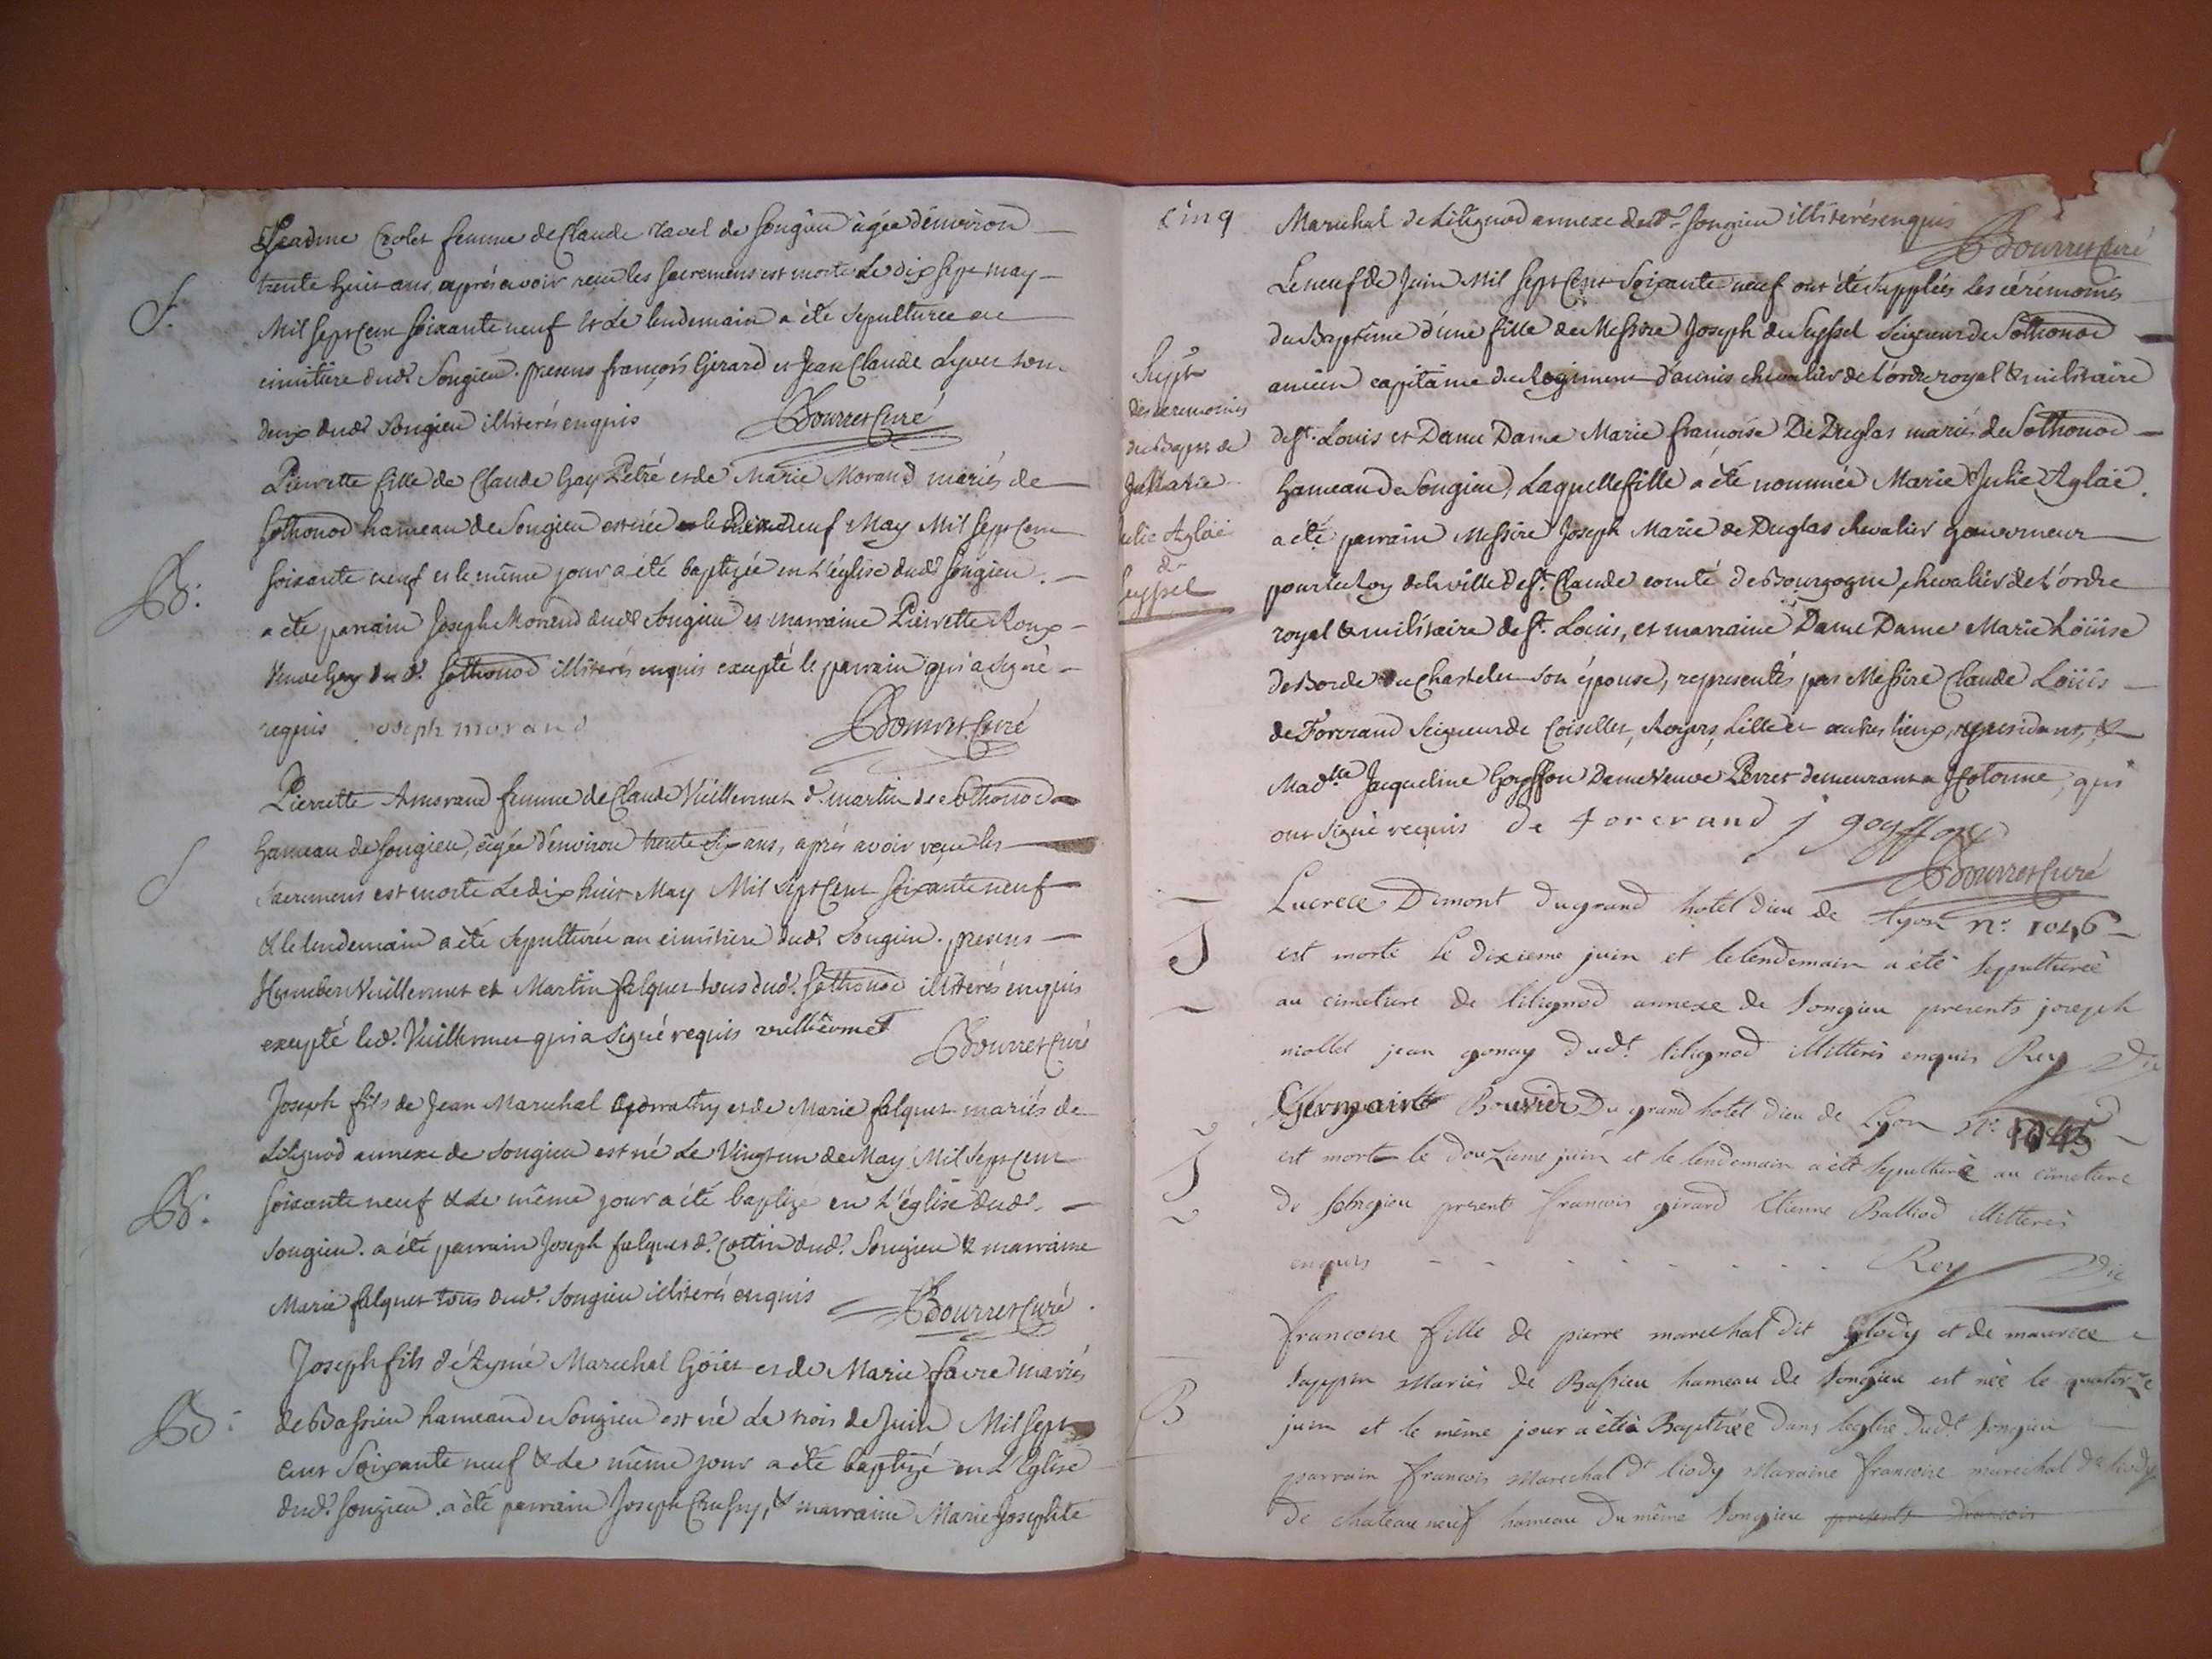 Crolet femme de Claude Ravel de Songieu agée d'environ
S. trente huit ans, après avoir reçu les sacremens est morte le dix sept may
Mil sept cent soixante neuf & le lendemain a été sepulturée au
cimitiere dud. Songieu. presens françois Girard et Jean Claude tous
deux dud. Songieu illiterés enquis Bourret Curé
Pierrette fille de Claude Gay Petré et de Marie Morand mariés de
Sothonod hameau de Songieu est née le Dixneuf May Mil sept cent
B. soixante neuf et le même jour a été baptizée en L'église dud. Songieu.
a été parrain Joseph Morand dud. Songieu et marraine Pierrette Roux
veuve Gay dud. Sothonod illiterés enquis excepté le parrain qui a signé
requis joseph morand Bourret Curé
Pierrette femme de Claude Vuillermet d. martin de Sothonod
S hameau de Songieu, agée d'environ trente six ans, après avoir reçu les
Sacremens est morte le dix huit May Mil sept cent soixante neuf
& le lendemain a été sepulturée au cimitiere dud. Songieu. presens
Humbert Vuillermet et Martin falquet tous dud. Sothonod illiterés enquis
excepté led. Vuillermet qui a signé requis vulliermet Bourret Curé
Joseph fils de Jean Marechal et de Marie falquet mariés de
Lilignod annexe de Songieu est né le Vingt un de May Mil sept cent
B. soixante neuf & le même jour a été baptizé en L'église dud.
Songieu. a été parrain Joseph falquet d. Cottin dud. Songieu & marraine
Marie falquet tous dud. Songieu illiterés enquis Bourret Curé
Joseph fils d'Aymé Marechal Goiet et de Marie favre mariés
B. de Bassieu hameau de Songieu est né le trois de Juin Mil sept
cent soixante neuf & le même jour a été baptizé en L'Eglise
dud. Songieu. a été parrain Joseph & marraine Marie Josephte
cinq
Marechal de Lilignod annexe dud. Songieu illiterés enquis
Bourret Curé
Le neuf de Juin Mil sept Cent Soixante neuf ont été suppléés les cérémonies
du Baptême d'une fille de Messire Joseph de Seyssel Seigneur de Sothonod
ancien capitaine du Regiment d'aunis chevalier de L'ordre royal & militaire
de St. Louis et Dame Dame Marie françoise De Duglas mariés de Sothonod
hameau de Songieu, Laquelle fille a été nommée Marie Julie Aglaë.
a été parrain Messire Joseph Marie de Duglas chevalier gouverneur
pour le Roy de la ville de St. Claude comté de Bourgogne, chevalier de l'ordre
royal & militaire de St. Louis, et marraine Dame Dame Marie Loüise
de Borde du Chastelet son épouse, representés par Messire Claude Loüis
de Forcrand Seigneur de Coiselet, Lille et autres lieux, &
Madlle Jacqueline Goyffon Dame Veuve Perret demeurant a, qui
ont signé requis de forcrand j goyffon
Bourret Curé
Supt.
des ceremonies
du Bapt. de
Marie
Julie Aglaé
de
Seyssel
Lucrece Dimont du grand hotel dieu de Lyon n° 1046
S est morte le dixieme juin et le lendemain a été sepulturée
au cimetiere de lilignod annexe de Songieu presents joseph
mollet jean gonay dudt. lilignod illitterés enquis Rey Vic
Germaint Bouvier du grand hotel dieu de Lyon n° 1045
S est mort le douzieme juin et le lendemain a été sepulturé au cimetiere
de Songieu present francois girard Etienne Balliod illitterés
enquis Rey Vic
francoise fille de pierre marechal dit et de maurice
Sappin Mariés de Bassieu hameau de Songieu est née le quatorze
B juin et le même jour a été Baptisée dans leglise dudt Songieu
parrain francois Marechal dt liody Maraine francoise marechal dt liody
de chateau neuf hameau du même Songieu presents francois